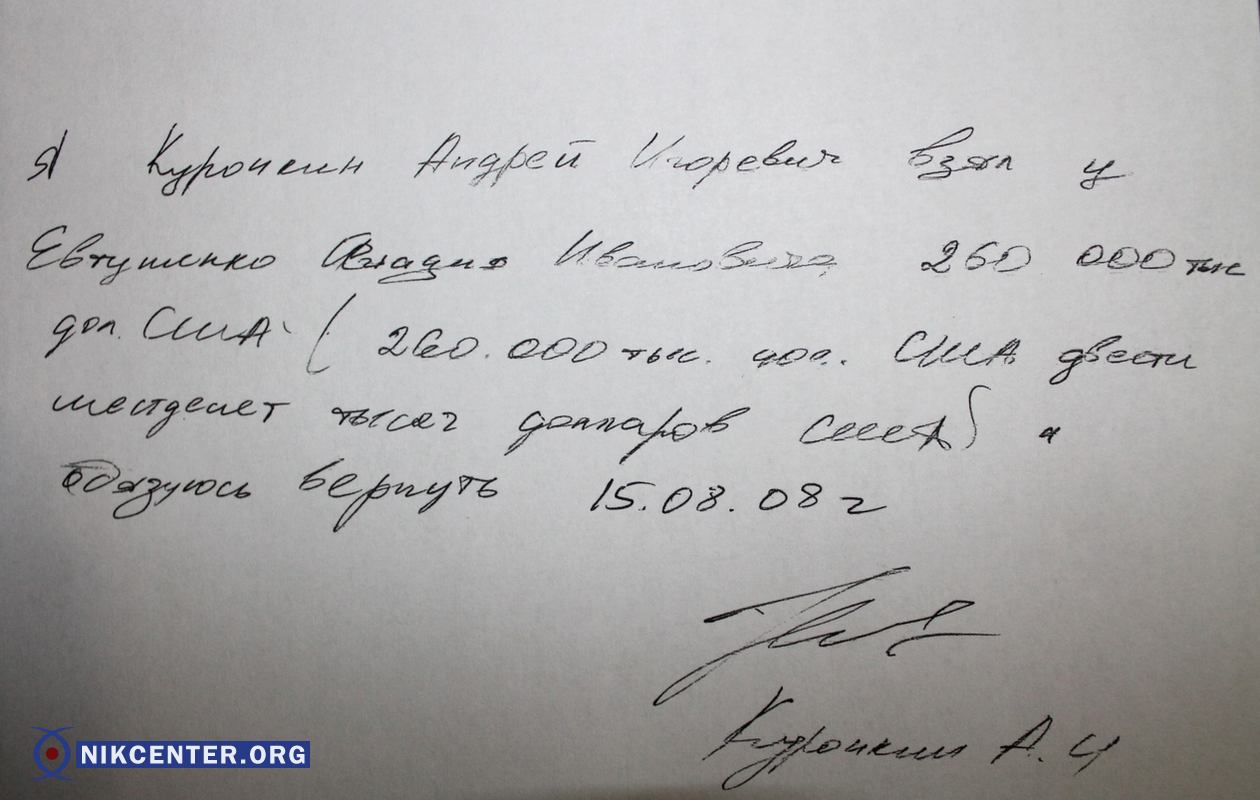 Я Курочкин Андрей Игоревич взял у
Евтушенко Ивановича 260 000 тыс
дол. США ( 260.000 тыс. дол. США двести
шестдесет тысяч долларов США) и
обязуюсь вернуть 15.08.08 г
Курочкин А. И
NIKCENTER.ORG